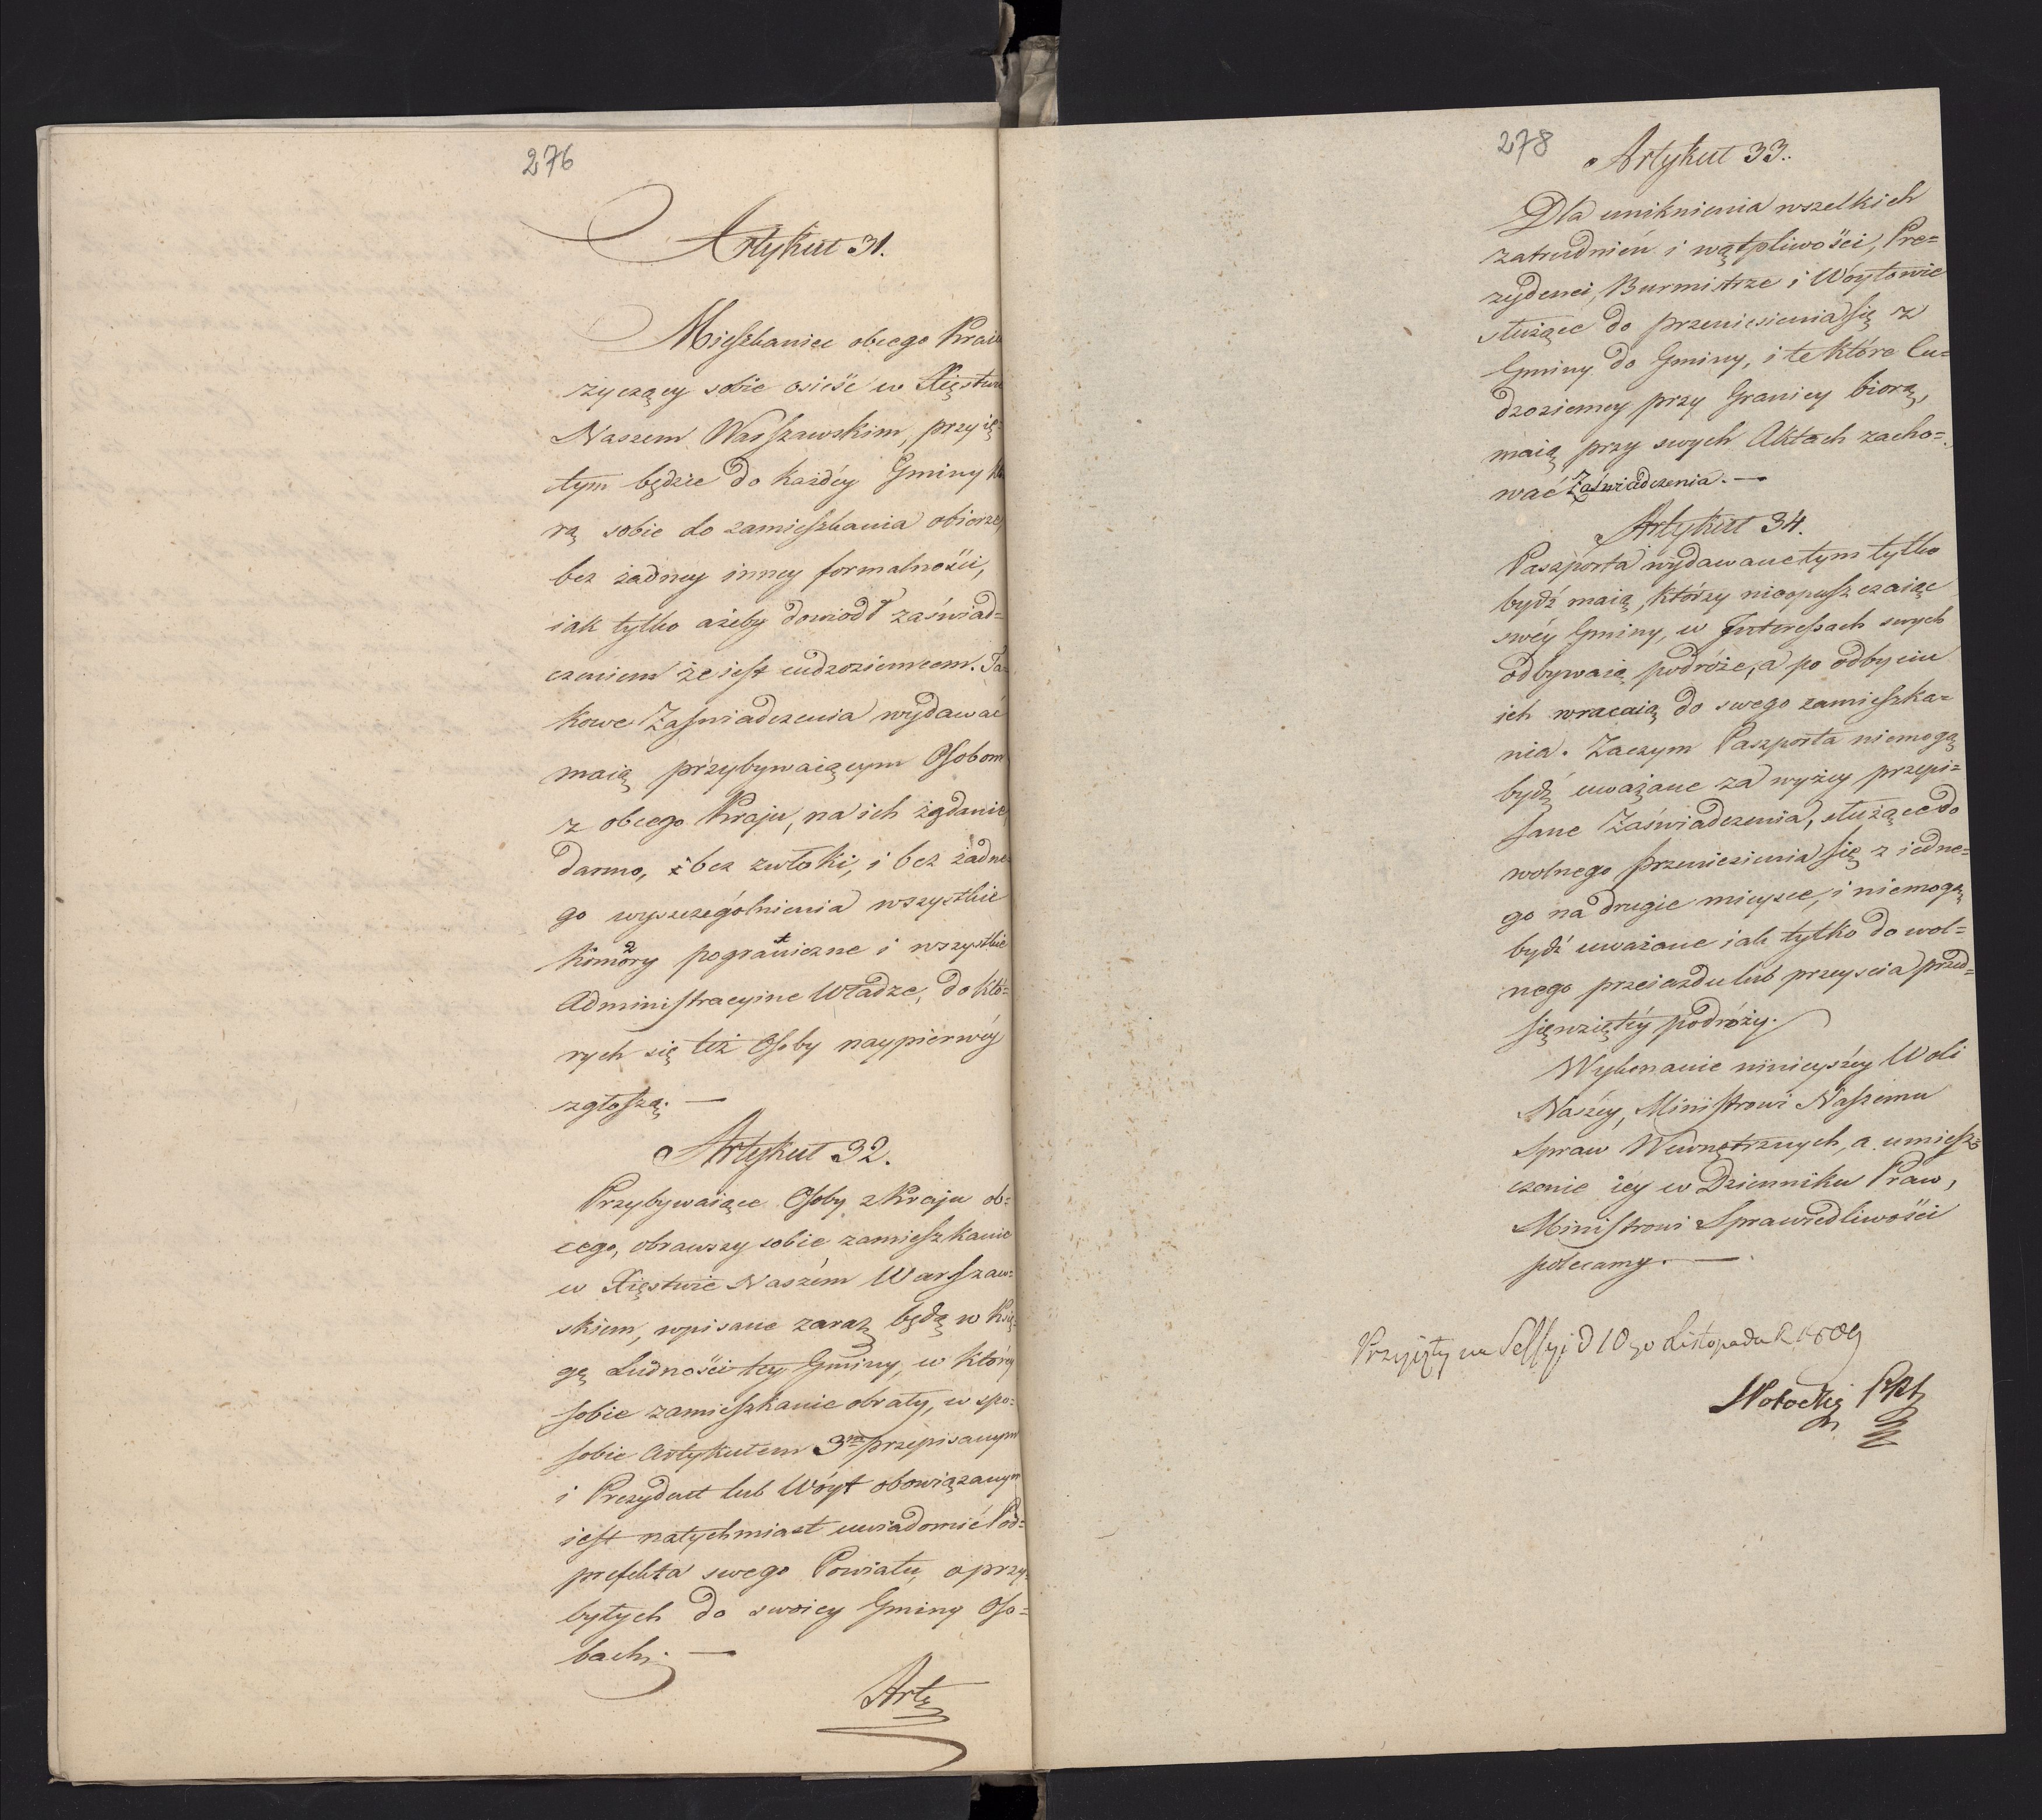 276
Artykuł 31.
Mieszkaniec obcego Kraiu
życzący sobie osieść w Xięstwie
Naszem Warszawskim, przyię-
tym będzie do każdéy Gminy któ
rą sobie do zamieszkania obierze,
bez żadney inney formalności,
iak tylko ażeby dowiodł zaświad=
czeniem że iest cudzoziemcem. Ta=
kowe Zaświadczenia wydawać
maią przybywaiącym Osobom
z obcego Kraju, na ich żądanie
darmo, i bez zwłoki, i bez żadne
go wyszczególnienia wszystkie
Komory pograniczne i wszystkie
Administracyine Władze, do któ=
rych się też Osoby naypierwéy
zgłoszą. —
Artykuł 32.
Przybywaiące Osoby z Kraju ob=
cego, obrawszy sobie zamieszkanie
w Xięstwie Naszém Warszaw=
skiem, wpisane zaraz będą w Księ
gę Ludności tey Gminy, w którey
sobie zamieszkanie obrały, w spo=
sobie Artykułem 3m przepisanym
i Prezydent lub Wóyt obowiązanym
iest natychmiast uwiadomić Pod=
prefekta swego Powiatu, o przy=
byłych do swoiey Gminy Oso=
bach. —
Arty
278
Artykuł 33.
Dla uniknienia wszelkich
zatrudnień i wątpliwości, Pre=
zydenci, Burmistrze i Wóytowie
służące do przeniesienia się z
Gminy do Gminy, i te które Cu=
dzoziemcy przy Granicy biorą,
maią przy swych Aktach zacho=
wać Zaświadczenia. —
Artykuł 34.
Paszporta wydawane tym tylko
bydź maią, którzy nieopuszczaiąc
swéy Gminy, w Interessach swych
odbywaią podróże, a po odbyciu
ich wracaią do swego zamieszka=
nia. Zaczym Paszporta niemogą
bydź uważane za wyżey przepi=
sane Zaświadczenia, służące do
wolnego przeniesienia się z iedne=
go na drugie mieysce, i niemogą
bydź uważane iak tylko do wol=
nego przeiazdu lub przeyscia przed=
sięwziętéy podróży.
Wykonanie ninieyszéy Woli
Naszéy, Ministrowi Naszemu
Spraw Wewnętrznych, a umiesz=
czenie iéy w Dzienniku Praw,
Ministrowi Sprawiedliwości
polecamy. —
Przyięty na Sessyi d 10go Listopada R 1809